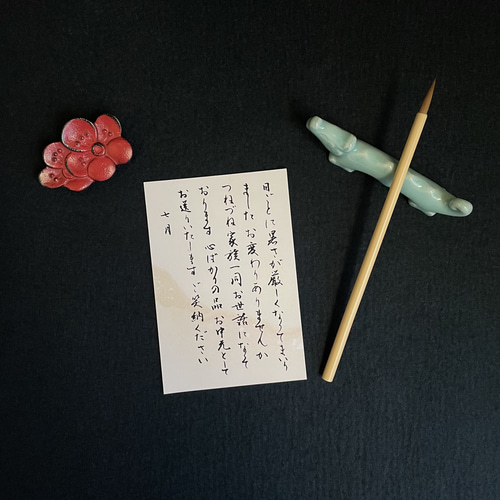 日ごとに暑さが厳しくなってまいり
ました お変わりありませんか
つねづね家族一同お世話になって
おります 心ばかりの品 お中元として
お送りいたします ご笑納ください
七月